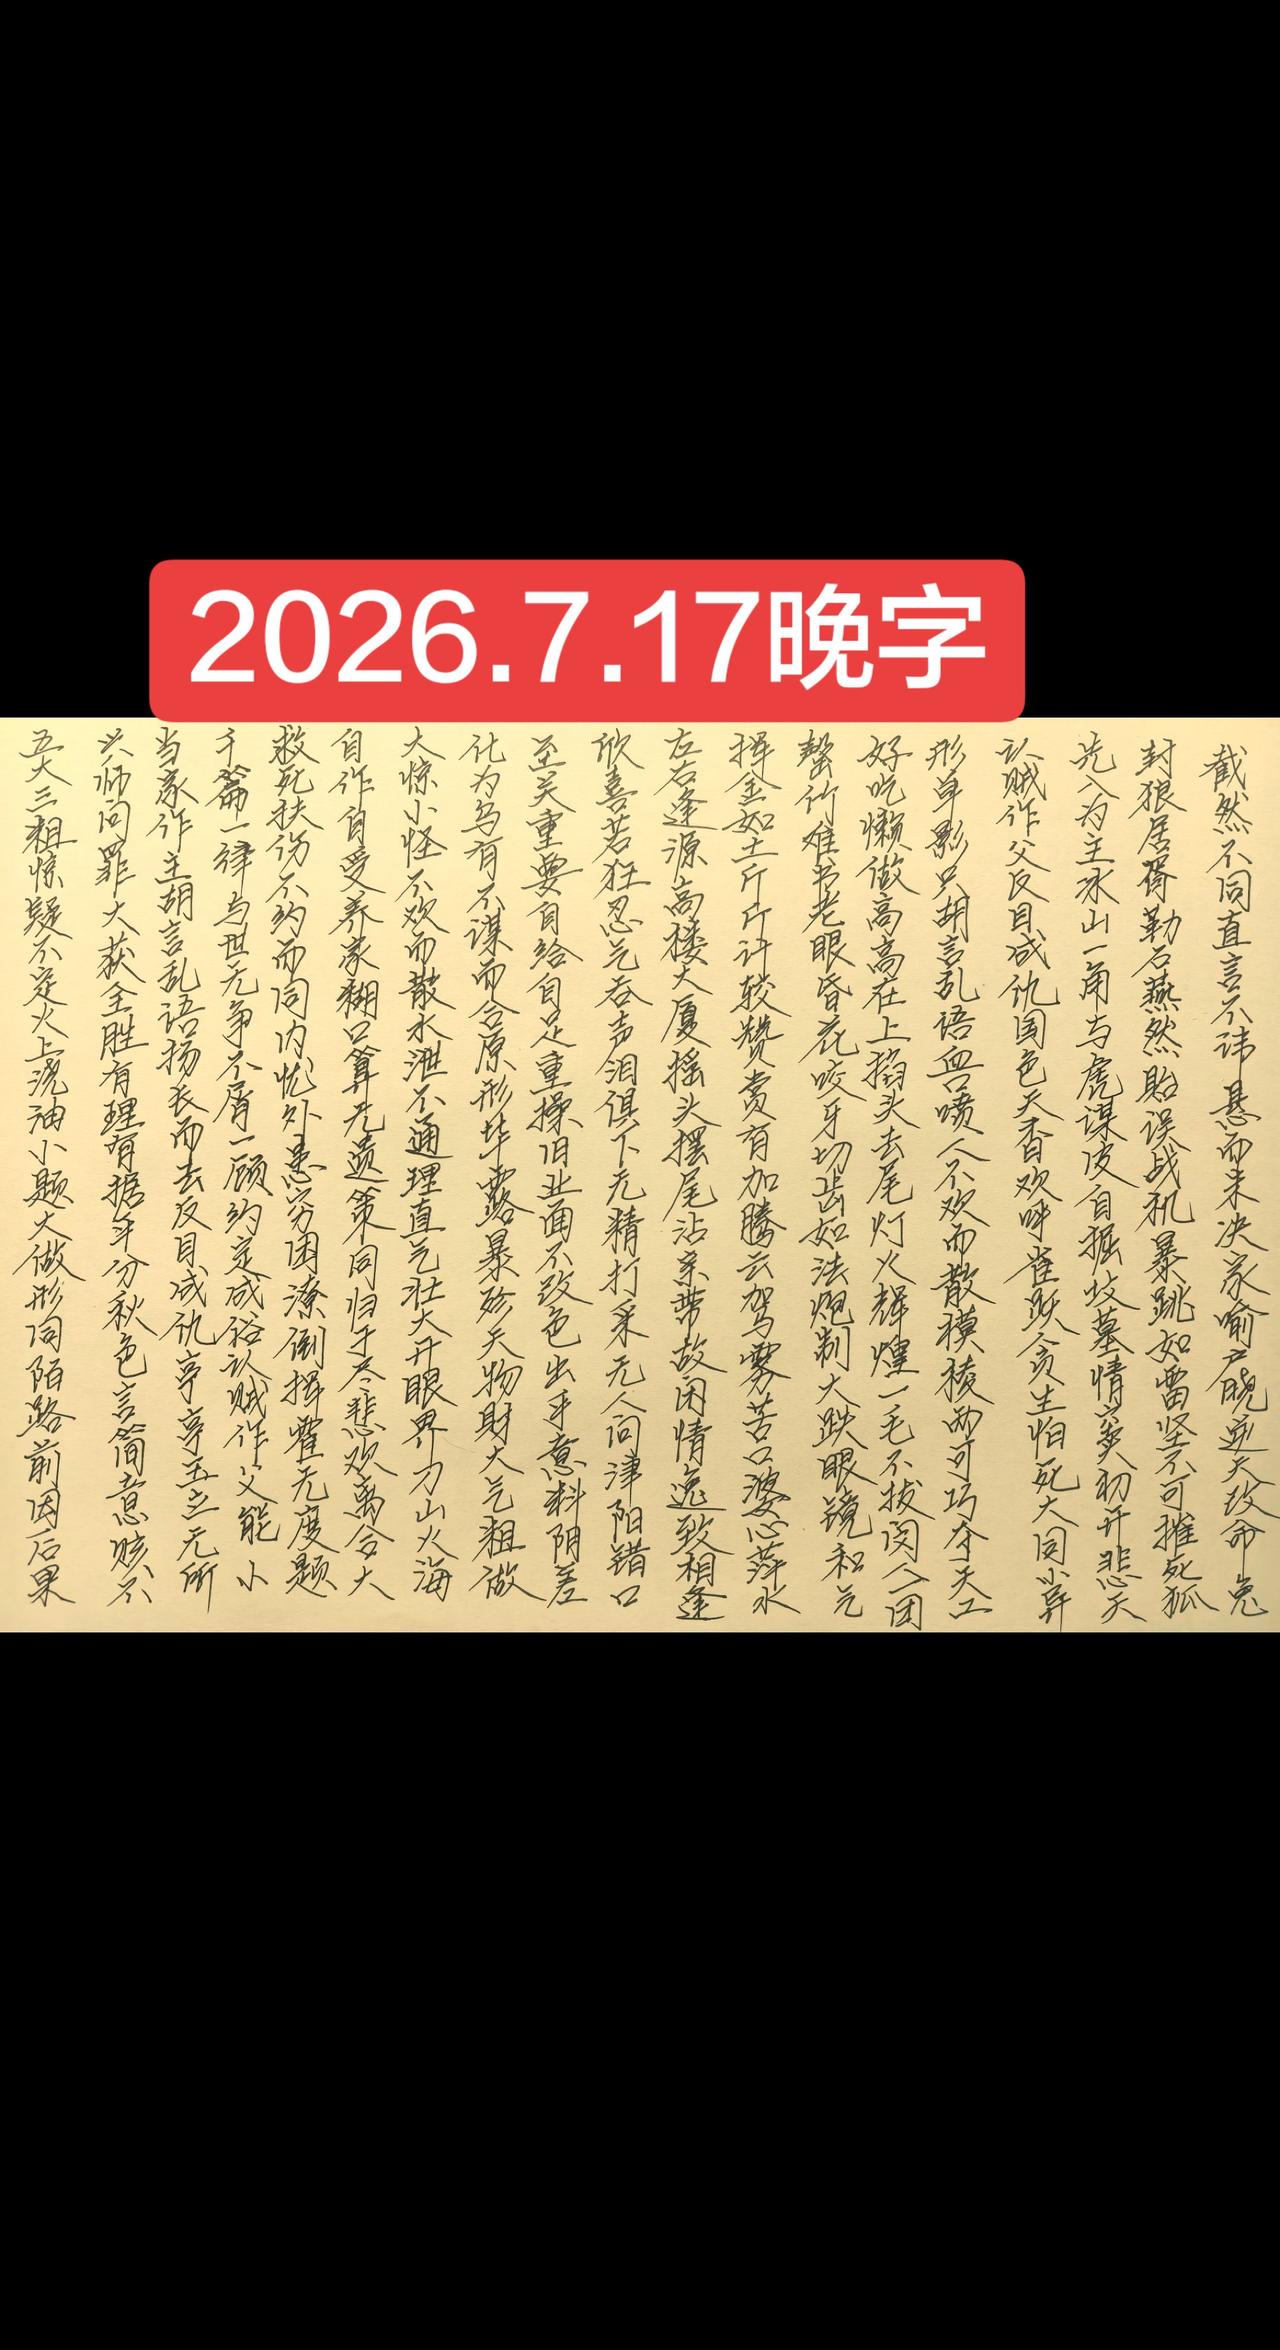 2026.7.17晚字
截然不同直言不讳悬而未决家喻户晓逆天改命兔
封狼居胥勒石燕然贻误战机暴跳如雷坚不可摧死狐
先入为主冰山一角与虎谋皮自掘坟墓情窦初开悲天
认贼作父反目成仇国色天香欢呼雀跃贪生怕死大同小异
形单影只胡言乱语血口喷人不欢而散模棱两可巧夺天工
好吃懒做高高在上掐头去尾灯火辉煌一毛不拔阅人团
罄竹难书老眼昏花咬牙切齿如法炮制大跌眼镜和气
挥金如土斤斤计较赞赏有加腾云驾雾苦口婆心萍水
左右逢源高楼大厦摇头摆尾沾亲带故闲情逸致相逢
欣喜若狂忍气吞声泪俱下无精打采无人问津阳错口
至关重要自给自足重操旧业面不改色出乎意料阴差
化为乌有不谋而合原形毕露暴殄天物财大气粗做
大惊小怪不欢而散水泄不通理直气壮大开眼界刀山火海
自作自受养家糊口算无遗策同归于尽悲欢离合大
救死扶伤不约而同内忧外患穷困潦倒挥霍无度题
千篇一律与世无争不屑一顾约定成俗认贼作父能小
当家作主胡言乱语扬长而去反目成仇亭亭玉立无所
兴师问罪大获全胜有理有据平分秋色言简意赅不
五大三粗惊疑不定火上浇油小题大做形同陌路前因后果